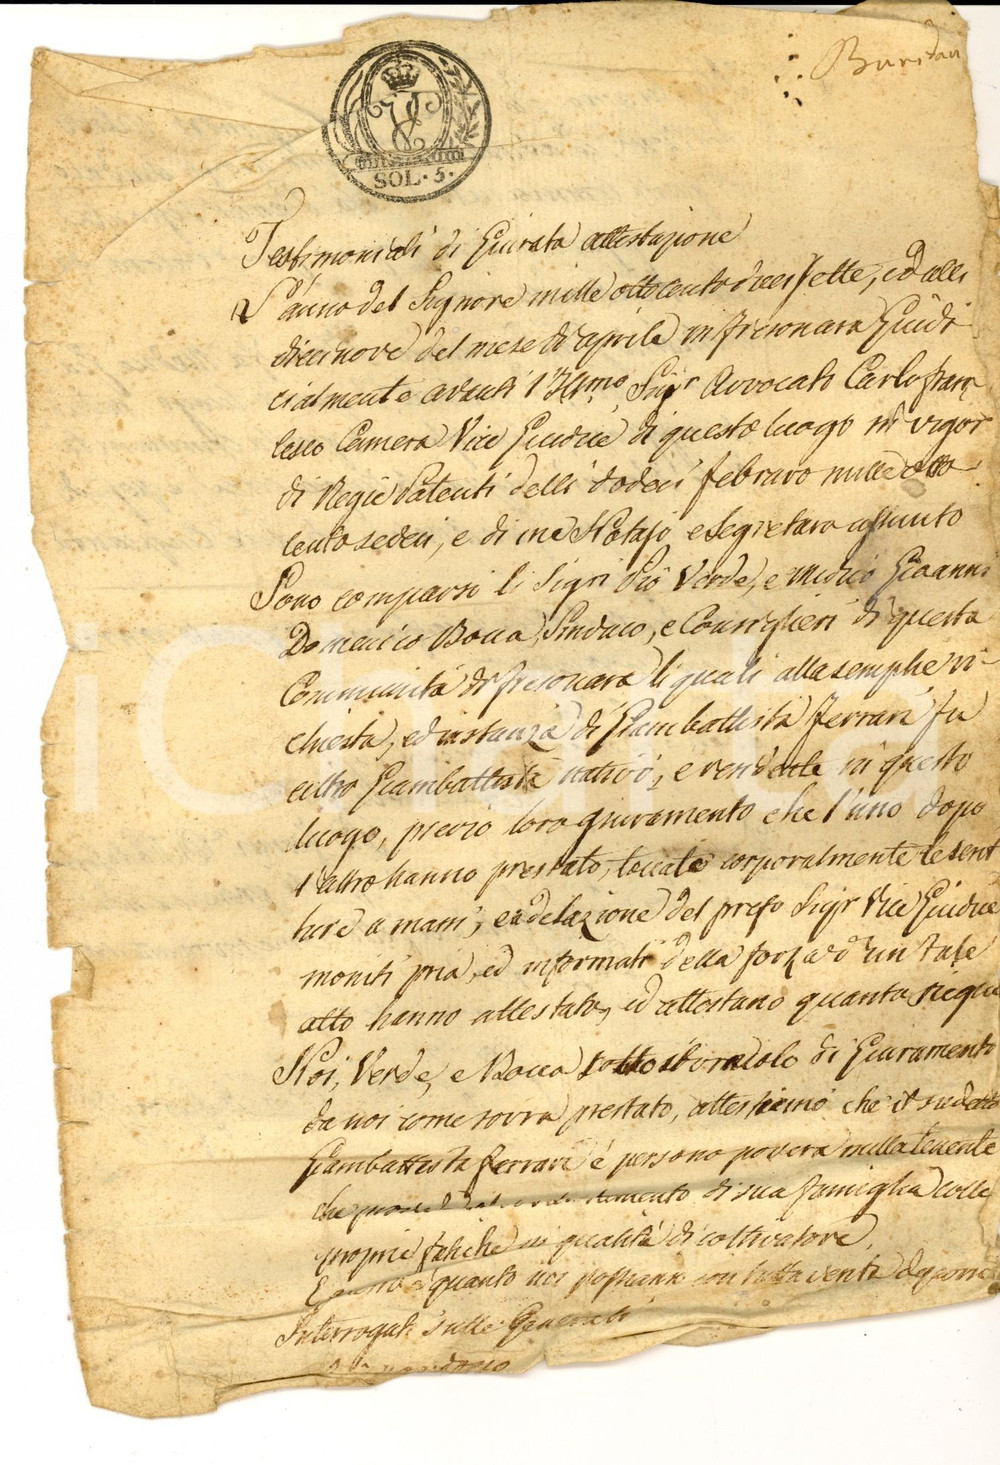 Buridan
SOL. 5.
Testimoniali di Giurata attestazione
L'anno del Signore mille ottocento diecisette, ed alli
diecinove del mese di aprile in fresonara Giudi
cialmente avanti l'Ill.mo Sig.r Avvocato Carlo fran
cesco Camera Vice Giudice di questo luogo in vigor
di Regie Patenti delli dodeci febraro mille otto
cento sedeci, e di me Notajo e Segretaro assunto
Sono comparsi li Sig.ri Pio Verde, e Medico Gioanni
Domenico Bocca Sindaco, e Consiglieri di questa
Communità di fresonara li quali alla semplice ri
chiesta, ed instanza di Giambattista Ferrari fu
altro Giambattista nativo, e residente in questo
luogo, previo loro giuramento che l'uno dopo
l'altro hanno prestato, toccate corporalmente le scrit
ture a mani, e a delazione del prefo Sig.r Vice Giudice
moniti pria, ed informati della forza d'un tale
atto hanno attestato, ed attestano quanto siegue
Noi, Verde, e Bocca sotto il vincolo di Giuramento
da noi come sovra prestato, attestiamo che il sudetto
Giambattista Ferrari è persona povera nulla tenente
che di sua famiglia colle
proprie fatiche in qualità di coltivatore.
E quanto noi possiamo con tutta verità deporre
Interrogati sulle Generali